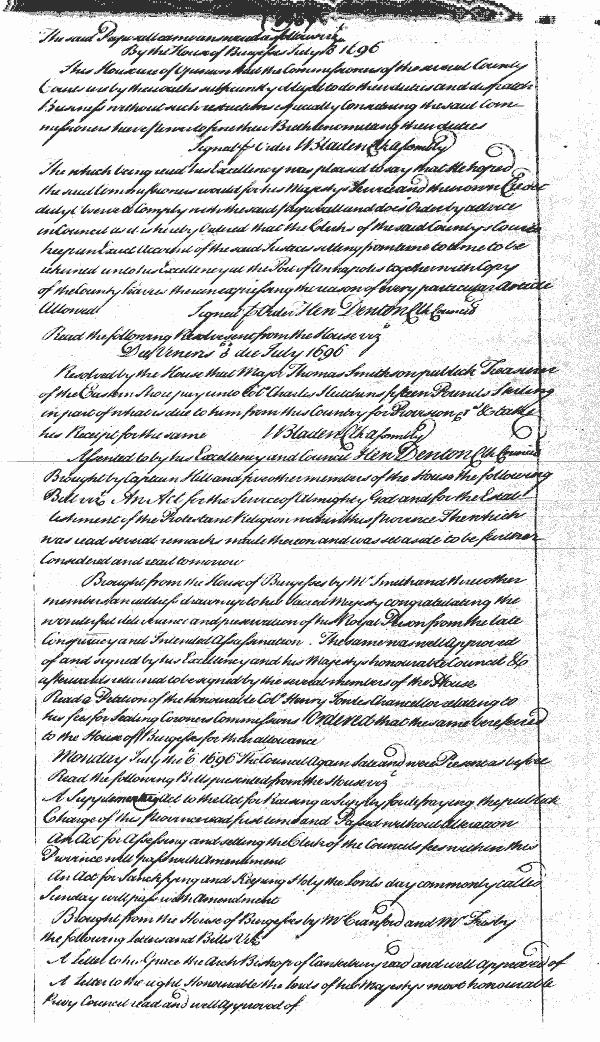 The said Paper all came answered as followeth viz
By the House of Burgesses July 3 1696
This House is of Opinion that the Commissioners of the several County
Courts is by their oaths sufficiently obliged to do their duties and dispatch
Business without such restrictions especially Considering the said Com-
missioners have power to fine their Brethren omitting their duties
Signed p Order W Bladen Clk assembly
The which being read his Excellency was pleased to say that He hoped
the said Commissioners would for his Majestys Service and their own Credit
duly Comply with the said and does Order by advice
in Council as it is hereby Ordered that the Clerks of the said County's Courts
keep an Exact Account of the said Justices sitting from time to time to be
returned unto his Excellency at the Port of Annapolis together with Copy
of the County Leavies therein expressing the reason of every particular Article
Allowed Signed p Order Hen Denton Clk Council
Read the following Resolve sent from the House viz
Die Veneris 3 die July 1696
Resolved by the House that Major Thomas Smithson publick Treasurer
of the Eastern Shore pay unto Col Charles Hutchins fifteen Pounds Sterling
in part of what is due to him from this Country for Provision &c & take
his Receipt for the same W Bladen Clk assembly
Assented to by his Excellency and Council Hen Denton Clk Council
Brought by Captain Hill and five other members of the House the following
Bill viz An Act for the Service of Almighty God and for the Estab
lishment of the Protestant Religion within this Province The which
was read several remarks made thereon and was set aside to be further
Considered and read tomorrow
Brought from the House of Burgesses by Mr Smith and three other
members an address drawn up to her Sacred Majesty congratulating the
wonderful deliverance and preservation of his Royal Person from the late
Conspiracy and Intended Assassination. The same was well Approved
of and signed by his Excellency and his Majestys honourable Council &
afterwards returned to be signed by the several members of the House
Read a Petition of the honourable Col Henry Chancellor relating to
his fees for Sealing Coroners Commissions Ordered that the same be referred
to the House of Burgesses for their allowance
Monday July the 6 1696 The Council Again Sate and were Present as before
Read the following Bills presented from the House viz
A Supplementary Act to the Act for Raising a Supply for defraying the publick
Charge of this Province read first time and Passed without alteration
An Act for Assessing and settling the Clerk of the Councils fees within this
Province will Pass with Amendment
An Act for Sanctifying and Keeping Holy the Lords day commonly called
Sunday will pass with Amendment
Brought from the House of Burgesses by Mr Cranford and Mr Frisby
the following Letters and Bills Viz
A Letter to his Grace the Arch Bishop of Canterbury read and well Approved of
A Letter to the right Honourable the Lords of his Majestys most honourable
Privy Council read and well Approved of